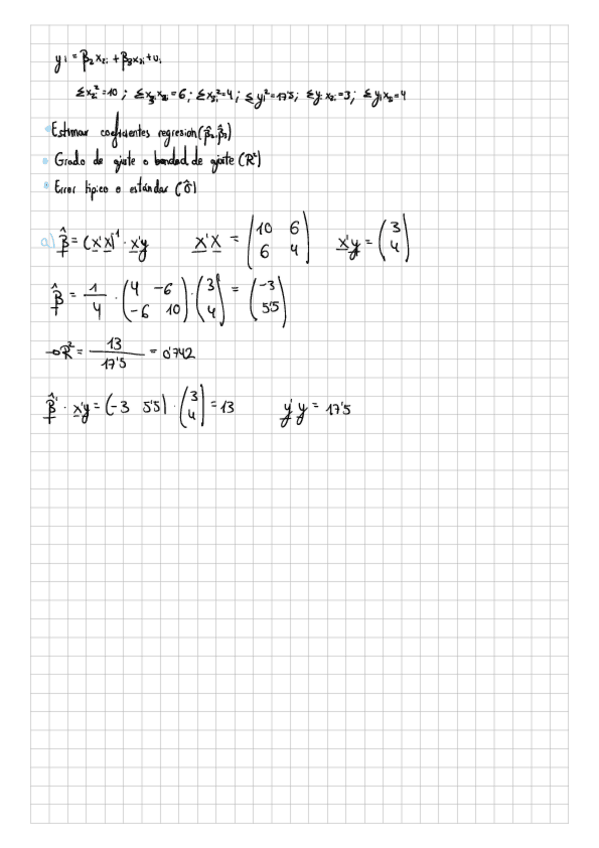 yi = β2 x2i + β3 x3i + ui
Σx2² = 10 ; Σx3 x2 = 6 ; Σx3² = 4 ; Σyi² = 17'5 ; Σy x2 = 3 ; Σyi x3 = 4
• Estimar coeficientes regresión (β̂2, β̂3)
• Grado de ajuste o bondad de ajuste (R²)
• Error típico o estándar (σ̂)
a) β̂ = (x'x)⁻¹ · x'y   x'x = (10 6 / 6 4)   x'y = (3 / 4)
β̂ = 1/4 · (4 -6 / -6 10) · (3 / 4) = (-3 / 5'5)
→ R² = 13 / 17'5 = 0'742
β̂' · x'y = (-3 5'5) · (3 / 4) = 13   y'y = 17'5